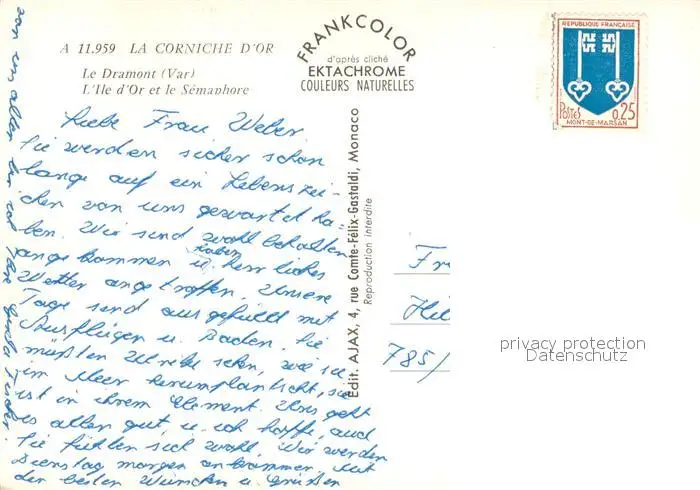 A 11.959 LA CORNICHE D'OR
Le Dramont (Var)
L'Ile d'Or et le Sémaphore
FRANKCOLOR
d'après cliché
EKTACHROME
COULEURS NATURELLES
REPUBLIQUE FRANÇAISE
POSTES 0,25
MONT-DE-MARSAN
Liebe Frau Weber
Sie werden sicher schon
lange auf ein Lebenszei-
chen von uns gewartet ha-
ben. Wir sind wohl behalten
angekommen u. haben herrliches
Wetter angetroffen. Unsere
Tage sind ausgefüllt mit
Ausflügen u. Baden. Sie
müßten sehen, wie sie
im Meer herumplantscht, sie
ist in ihrem Element. Uns geht
es allen gut, u. ich hoffe, auch
Sie fühlen sich wohl. Wir werden
Dienstag morgen ankommen. Mit
den besten Wünschen u. Grüßen
von uns allen bin ich Ihre
Edit. AJAX, 4, rue Comte-Félix-Gastaldi, Monaco
Reproduction interdite
Fr
785/
privacy protection
Datenschutz